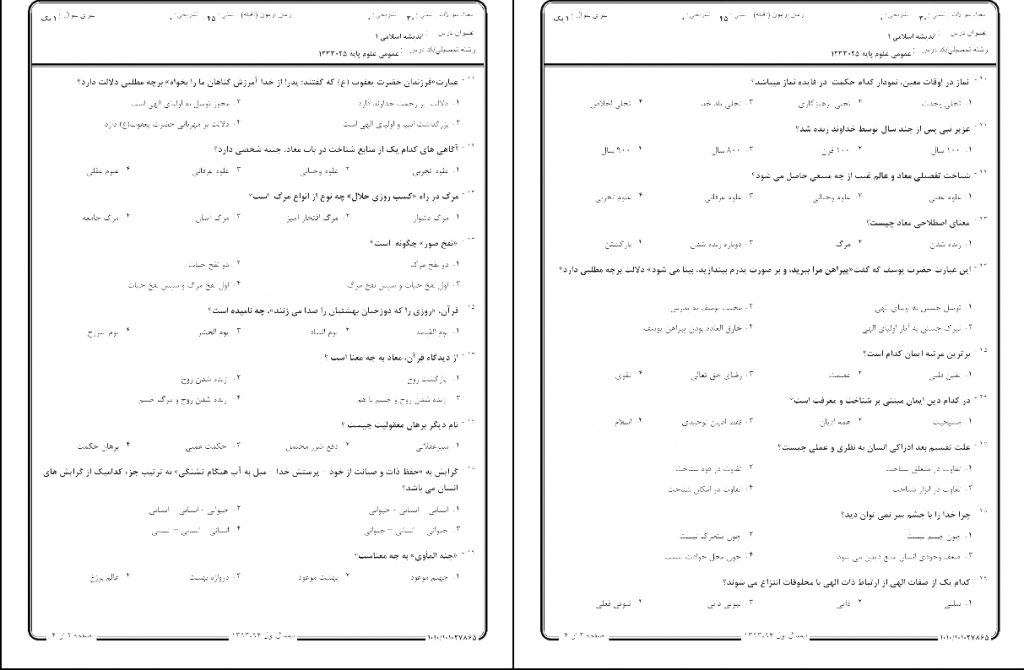 سری سوال : ۱ یک
زمان آزمون (دقیقه) : تستی : ۴۵ تشریحی : ۰
تعداد سوالات : تستی : ۳۰ تشریحی : ۰
عنوان درس : اندیشه اسلامی ۱
رشته تحصیلی/کد درس : عمومی علوم پایه ۱۲۳۳۰۲۵
نماز در اوقات معین، نمودار کدام حکمت در فایده نماز میباشد؟
۱. تجلی وحدت ۲. تجلی پرهیزگاری ۳. تجلی یاد خدا ۴. تجلی اخلاص
عزیر نبی پس از چند سال توسط خداوند زنده شد؟
۱. ۱۰۰ سال ۲. ۱۰۰ قرن ۳. ۸۰۰ سال ۴. ۹۰۰ سال
شناخت تفصیلی معاد و عالم غیب از چه منبعی حاصل می شود؟
۱. علوم عقلی ۲. علوم وحیانی ۳. علوم عرفانی ۴. علوم تجربی
معنای اصطلاحی معاد چیست؟
۱. زنده شدن ۲. مرگ ۳. دوباره زنده شدن ۴. بازگشتن
این عبارت حضرت یوسف که گفت«پیراهن مرا ببرید، و بر صورت پدرم بیندازید، بینا می شود» دلالت برچه مطلبی دارد؟
۱. توسل جستن به اولیای الهی ۲. محبت یوسف به پدرش
۳. تبرک جستن به آثار اولیای الهی ۴. خارق العاده بودن پیراهن یوسف
برترین مرتبه ایمان کدام است؟
۱. یقین قلبی ۲. عصمت ۳. رضای حق تعالی ۴. تقوی
در کدام دین ایمان مبتنی بر شناخت و معرفت است؟
۱. مسیحیت ۲. همه ادیان ۳. فقط ادیان توحیدی ۴. اسلام
علت تقسیم بعد ادراکی انسان به نظری و عملی چیست؟
۱. تفاوت در متعلق شناخت ۲. تفاوت در قوه شناخت
۳. تفاوت در ابزار شناخت ۴. تفاوت در امکان شناخت
چرا خدا را با چشم سر نمی توان دید؟
۱. چون جسم نیست ۲. چون متحرک نیست
۳. ضعف وجودی انسان مانع دیدن می شود ۴. چون محل حوادث نیست
کدام یک از صفات الهی از ارتباط ذات الهی با مخلوقات انتزاع می شوند؟
۱. سلبی ۲. ذاتی ۳. ثبوتی ذاتی ۴. ثبوتی فعلی
۱۰۱۰/۱۰۱۰۲۷۸۶۵ نیمسال اول ۹۴-۱۳۹۳ صفحه ۲ از ۴
سری سوال : ۱ یک
زمان آزمون (دقیقه) : تستی : ۴۵ تشریحی : ۰
تعداد سوالات : تستی : ۳۰ تشریحی : ۰
عنوان درس : اندیشه اسلامی ۱
رشته تحصیلی/کد درس : عمومی علوم پایه ۱۲۳۳۰۲۵
عبارت«فرزندان حضرت یعقوب (ع) که گفتند: پدر! از خدا آمرزش گناهان ما را بخواه» برچه مطلبی دلالت دارد؟
۱. دلالت بر رحمت خداوند دارد ۲. مجوز توسل به اولیای الهی است
۳. بزرگداشت انبیا و اولیای الهی است ۴. دلالت بر مهربانی حضرت یعقوب(ع) دارد
آگاهی های کدام یک از منابع شناخت در باب معاد، جنبه شخصی دارد؟
۱. علوم تجربی ۲. علوم وحیانی ۳. علوم عرفانی ۴. علوم عقلی
مرگ در راه «کسب روزی حلال» چه نوع از انواع مرگ است؟
۱. مرگ دشوار ۲. مرگ افتخار آمیز ۳. مرگ آسان ۴. مرگ جامعه
«نفخ صور» چگونه است؟
۱. دو نفخ مرگ ۲. دو نفخ حیات
۳. اول نفخ حیات و سپس نفخ مرگ ۴. اول نفخ مرگ و سپس نفخ حیات
قرآن، «روزی را که دوزخیان بهشتیان را صدا می زنند»، چه نامیده است؟
۱. یوم القیامه ۲. یوم التناد ۳. یوم الحشر ۴. یوم البرزخ
از دیدگاه قرآن، معاد به چه معنا است ؟
۱. بازگشت روح ۲. زنده شدن روح
۳. زنده شدن روح و جسم با هم ۴. زنده شدن روح و مرگ جسم
نام دیگر برهان معقولیت چیست ؟
۱. سیرعقلانی ۲. دفع ضرر محتمل ۳. حکمت عملی ۴. برهان حکمت
گرایش به «حفظ ذات و صیانت از خود - پرستش خدا - میل به آب هنگام تشنگی» به ترتیب جزء کدامیک از گرایش های
انسان می باشد؟
۱. انسانی - انسانی - حیوانی ۲. حیوانی - انسانی - انسانی
۳. حیوانی - انسانی - حیوانی ۴. انسانی - انسانی - انسانی
«جنه المأوی» به چه معناست؟
۱. جهنم موعود ۲. بهشت موعود ۳. دروازه بهشت ۴. عالم برزخ
۱۰۱۰/۱۰۱۰۲۷۸۶۵ نیمسال اول ۹۴-۱۳۹۳ صفحه ۳ از ۴